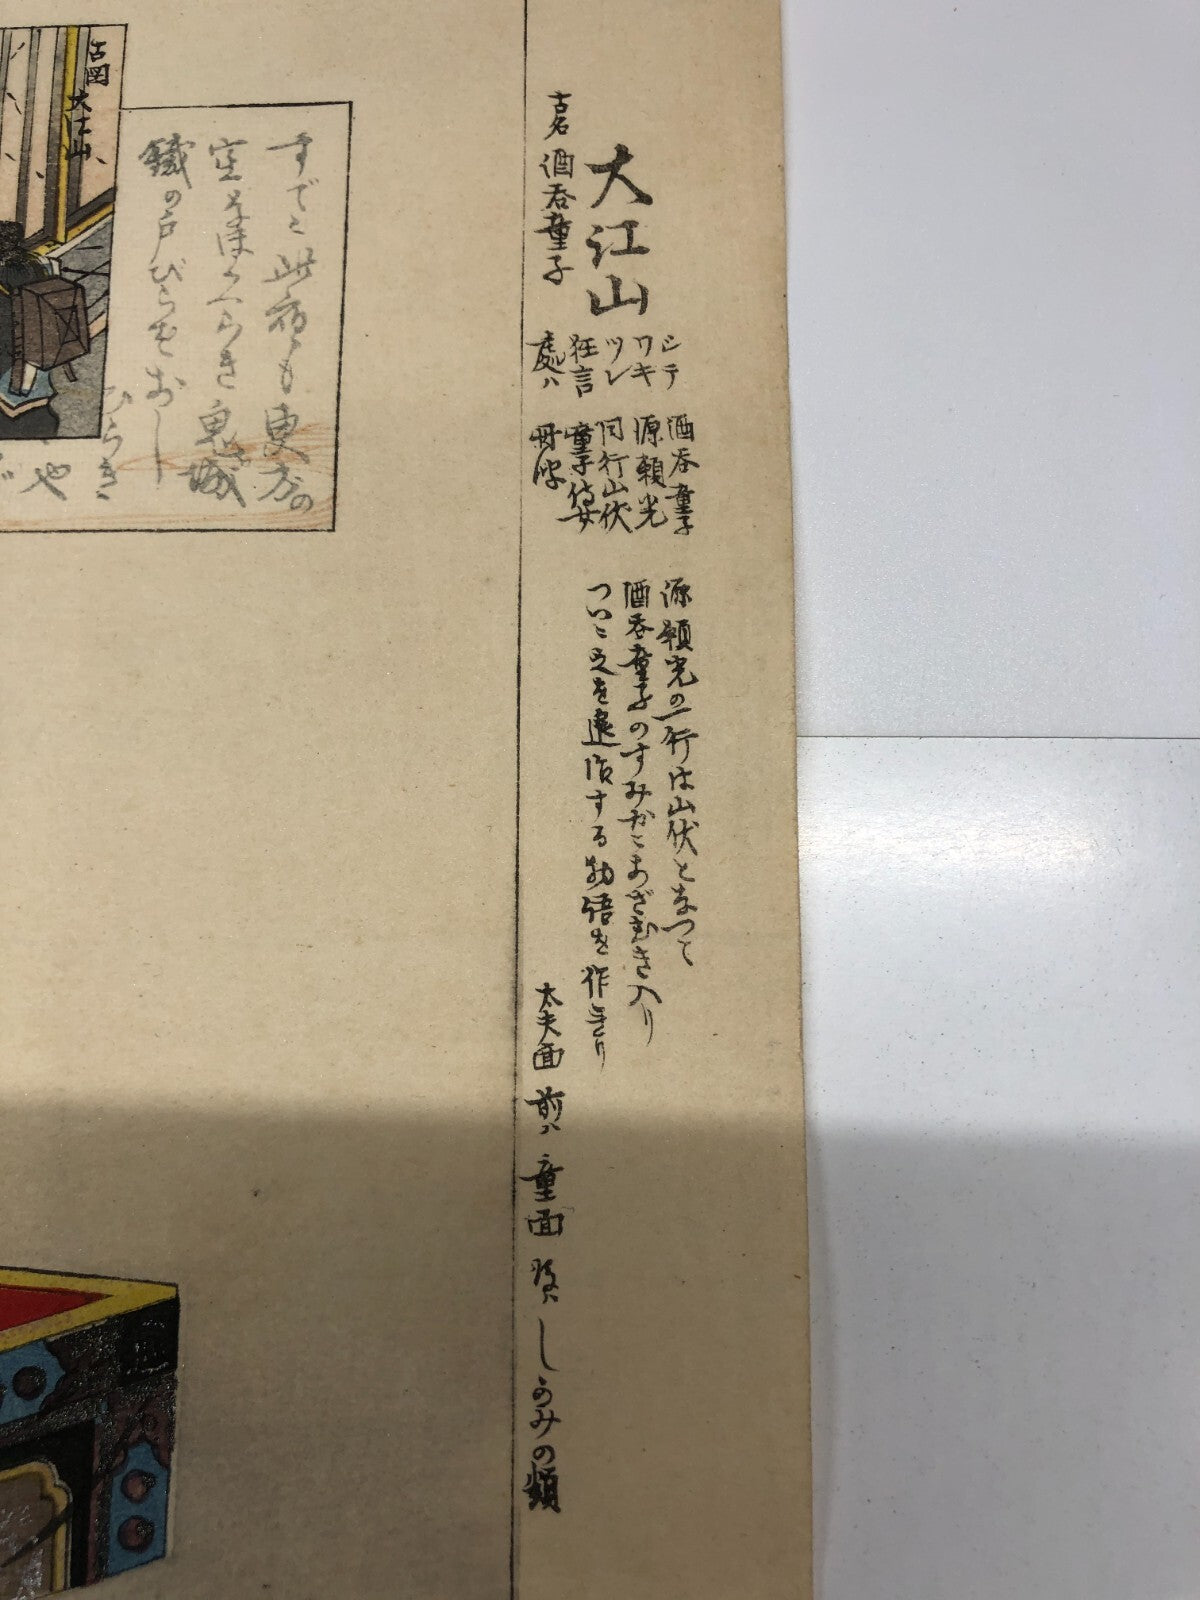 大江山
古名 酒呑童子
シテ 酒呑童子
ワキ 源頼光
ツレ 同行山伏
狂言 童子侍女
處ハ 丹波
源頼光の一行は山伏となつて
酒呑童子のすみかにあざむき入り
ついに之を退治する物語を作
太夫面 前ハ 童面 後ハ しかみの類
すでに此夜も更方の
空なほくらき鬼が城
鐵の戸びらをおし
ひらき
や
古図 大江山